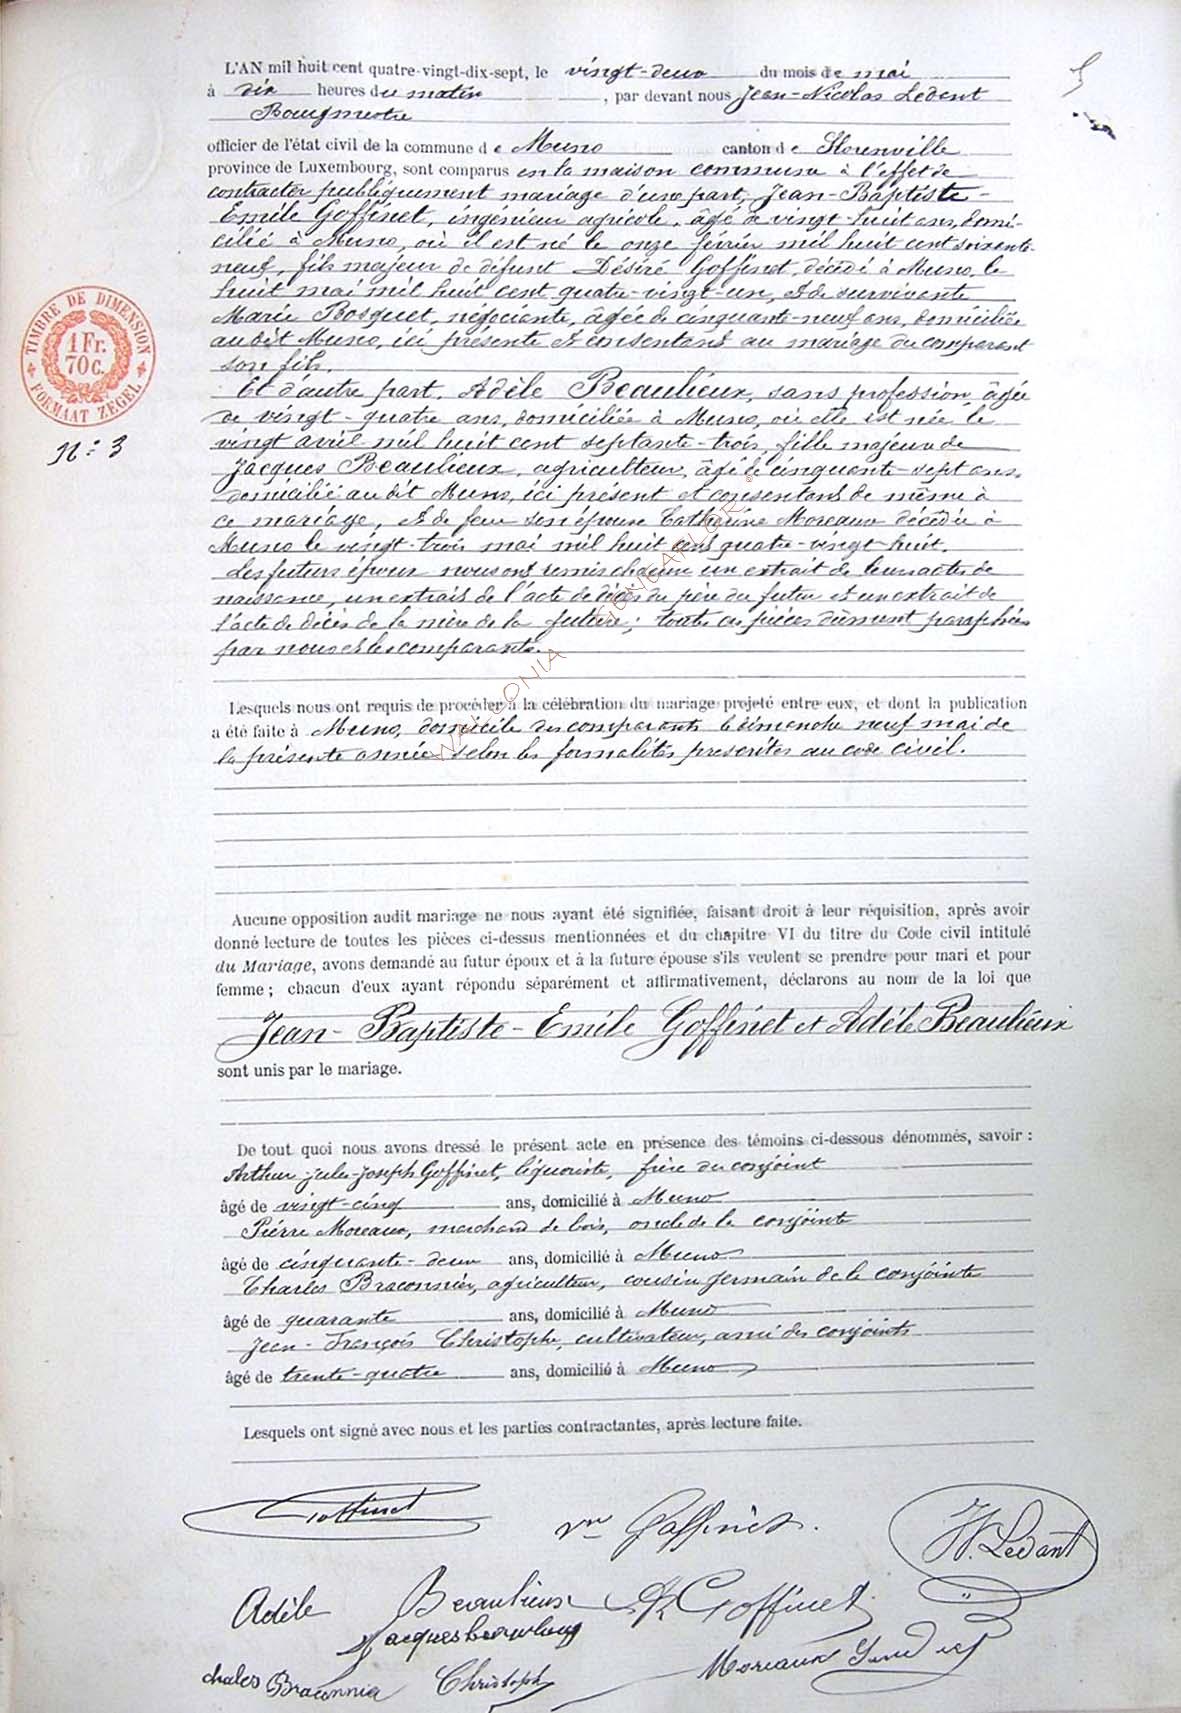 L'AN mil huit cent quatre-vingt-dix-sept, le vingt-deux du mois de mai
à dix heures du matin, par devant nous Jean-Nicolas Ledent
Bourgmestre
officier de l'état civil de la commune de Muno canton de Florenville
province de Luxembourg, sont comparus en la maison commune à l'effet de
contracter publiquement mariage d'une part, Jean-Baptiste-
Emile Goffinet, ingénieur agricole, âgé de vingt-huit ans, domi-
cilié à Muno, où il est né le onze février mil huit cent soixante-
neuf, fils majeur de défunt Désiré Goffinet, décédé à Muno, le
huit mai mil huit cent quatre-vingt-un, et de survivante
Marie Bosquet, négociante, âgée de cinquante-neuf ans, domiciliée
au dit Muno, ici présente et consentant au mariage du comparant
son fils.
Et d'autre part, Adèle Beaulieux, sans profession, âgée
de vingt-quatre ans, domiciliée à Muno, où elle est née le
vingt avril mil huit cent septante-trois, fille majeure de
Jacques Beaulieux, agriculteur, âgé de cinquante-sept ans,
domicilié au dit Muno, ici présent et consentant de même à
ce mariage, et de feue son épouse Catherine Moreaux décédée à
Muno le vingt-trois mai mil huit cent quatre-vingt-huit.
Les futurs époux nous ont remis chacun un extrait de leurs actes de
naissance, un extrait de l'acte de décès du père du futur et un extrait de
l'acte de décès de la mère de la future; toutes ces pièces dûment paraphées
par nous et les comparants.
Lesquels nous ont requis de procéder à la célébration du mariage projeté entre eux, et dont la publication
a été faite à Muno, domicile des comparants le dimanche neuf mai de
la présente année selon les formalités prescrites au code civil.
Aucune opposition audit mariage ne nous ayant été signifiée, faisant droit à leur réquisition, après avoir
donné lecture de toutes les pièces ci-dessus mentionnées et du chapitre VI du titre du Code civil intitulé
du Mariage, avons demandé au futur époux et à la future épouse s'ils veulent se prendre pour mari et pour
femme; chacun d'eux ayant répondu séparément et affirmativement, déclarons au nom de la loi que
Jean-Baptiste-Emile Goffinet et Adèle Beaulieux
sont unis par le mariage.
De tout quoi nous avons dressé le présent acte en présence des témoins ci-dessous dénommés, savoir :
Arthur-Jules-Joseph Goffinet, liquoriste, frère du conjoint
âgé de vingt-cinq ans, domicilié à Muno
Pierre Moreaux, marchand de bois, oncle de la conjointe
âgé de cinquante-deux ans, domicilié à Muno
Charles Braconnier, agriculteur, cousin germain de la conjointe
âgé de quarante ans, domicilié à Muno
Jean-François Christophe, cultivateur, ami des conjoints
âgé de trente-quatre ans, domicilié à Muno
Lesquels ont signé avec nous et les parties contractantes, après lecture faite.
TIMBRE DE DIMENSION
1 Fr.
70 C.
FORMAAT ZEGEL
N: 3
5
WALLONIA GENEARLOR
Goffinet
Vve Goffinet.
Ledent
Adèle Beaulieux
A Goffinet
Jacques beaulieux
Moreaux
charles Braconnier
Christophe